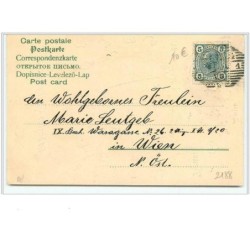 Carte postale
Postkarte
Correspondenzkarte
ОТКРЫТОЕ ПИСЬМО.
Dopisnice-Levelező-Lap
Post card
10 €
5 5
An Wohlgebornes Fräulein
Marie Leutgeb
IX. Bez. Wasagasse N. 26
in Wien
N. Öst.